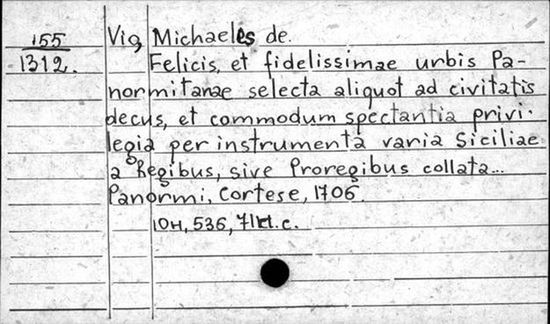 155
1312.
Vio, Michaeles de.
Felicis, et fidelissimae urbis Pa-
normitanae selecta aliquot ad civitatis
decus, et commodum spectantia privi-
legia per instrumenta varia Siciliae
a Regibus, sive Proregibus collata...
Panormi, Cortese, 1706.
10H, 536, 71 c.